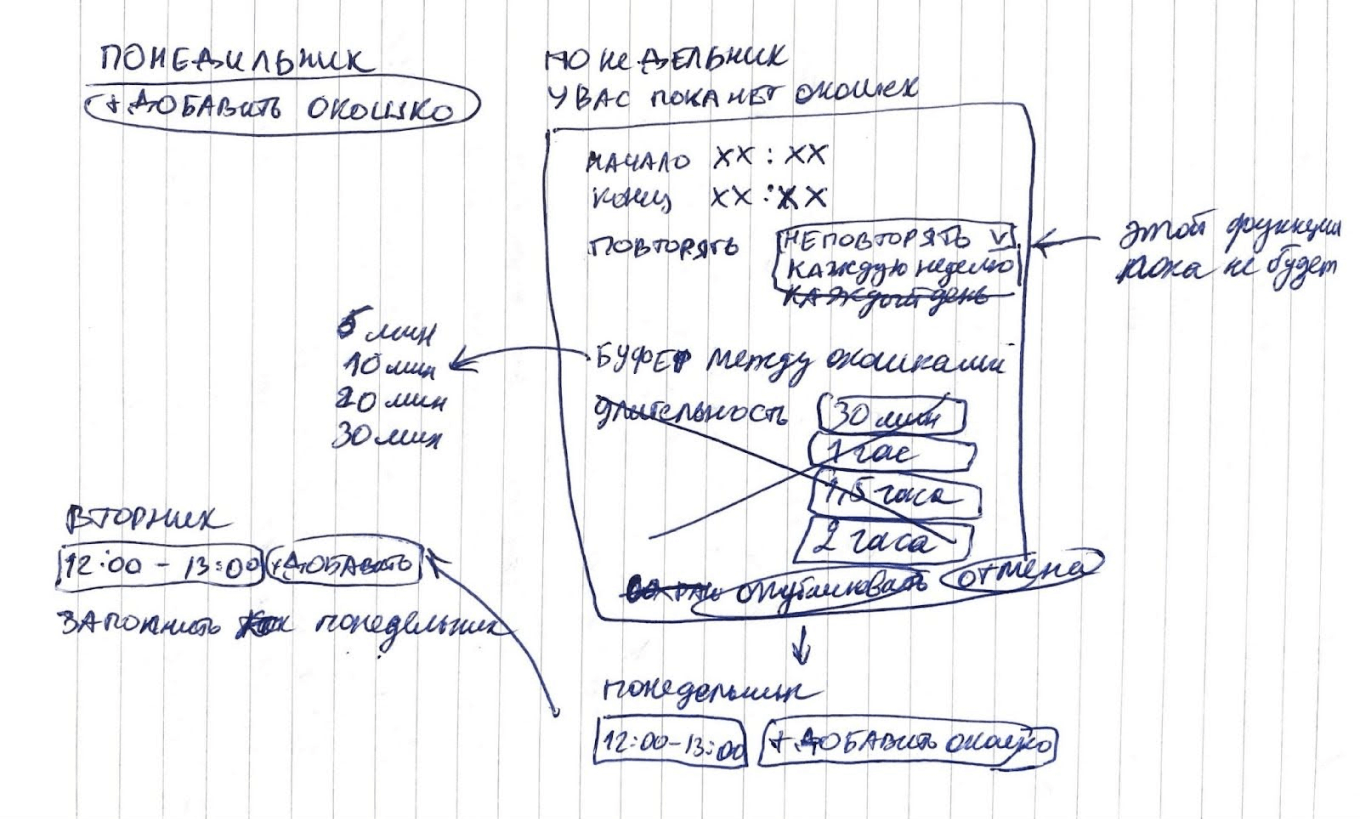 ПОНЕДИЛЬНИК
+ ДОБАВИТЬ ОКОШКО
ПОНЕДЕЛЬНИК
У ВАС ПОКА НЕТ ОКОШЕК
НАЧАЛО XX : XX
КОНЕЦ XX : XX
ПОВТОРЯТЬ
НЕ ПОВТОРЯТЬ V
КАЖДУЮ неделю
КАЖДЫЙ день
этой функции
пока не будет
БУФЕР между окошками
5 мин
10 мин
20 мин
30 мин
длительность
30 мин
1 час
1,5 часа
2 часа
опубликовать
отмена
ВТОРНИК
12:00 - 13:00
+ ДОБАВИТЬ
ЗАПОЛНИТЬ как понедельник
понедельник
12:00-13:00
+ ДОБАВИТЬ окошко